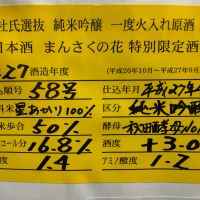 杜氏選抜 純米吟醸 一度火入れ原酒
日本酒 まんさくの花 特別限定酒
27 酒造年度 (平成26年10月~平成27年9月
順号 58号 仕込年月 平成27年
料米 星あかり100% 区分 純米吟醸
米歩合 50% 酵母 秋田酵母NO.
コール分 16.8% 日本酒度 +3.0
度 1.4 アミノ酸度 1.2